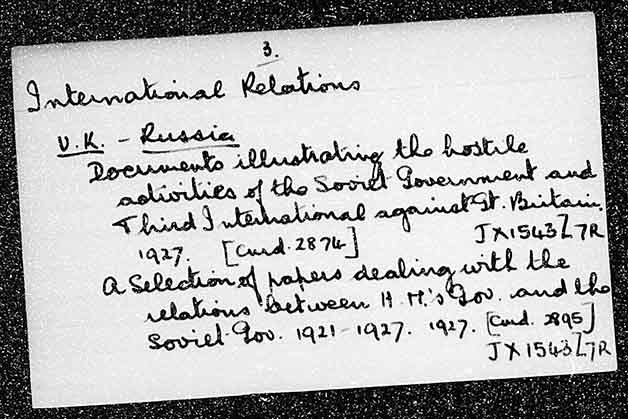 3.
International Relations
U.K. - Russia
Documents illustrating the hostile
activities of the Soviet Government and
Third International against Gt. Britain.
1927. [Cmd. 2874] JX1543Z7R
A Selection of papers dealing with the
relations between H.M.'s Gov. and the
Soviet Gov. 1921-1927. 1927. [Cmd. 2895]
JX1543Z7R